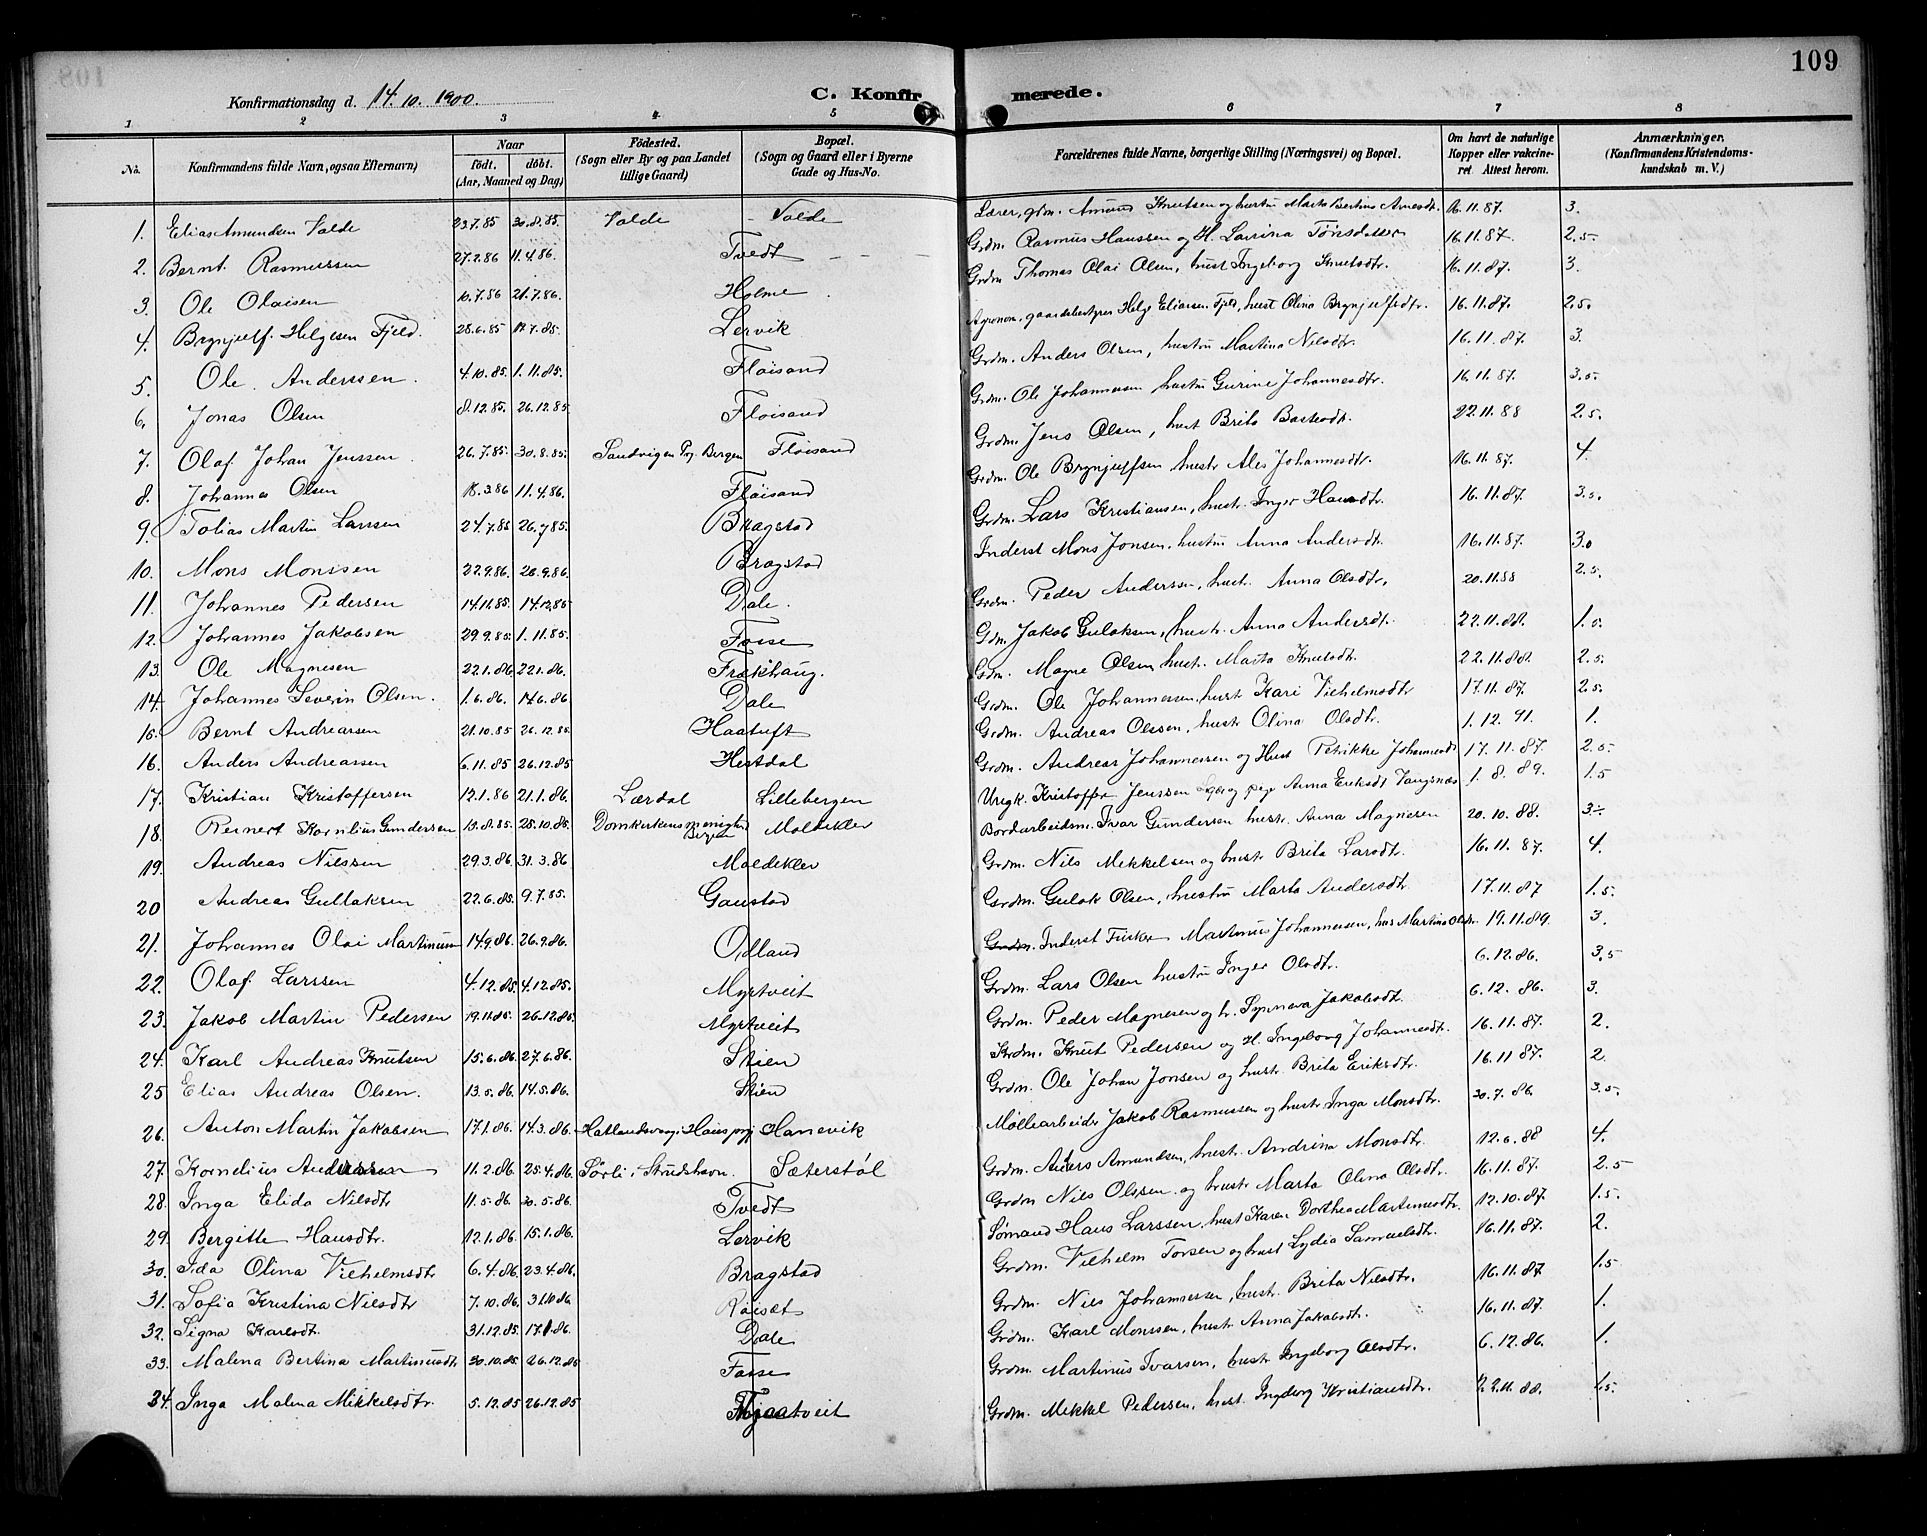 109
Konfirmationsdag d. 14.10.1900. C. Konfirmerede.
1 2 3 4 5 6 7 8
No. Konfirmandens fulde Navn, ogsaa Efternavn) Naar født. døbt. (Aar, Maaned og Dag) Födested. (Sogn eller By og paa Landet tillige Gaard) Bopæl. (Sogn og Gaard eller i Byerne Gade og Hus-No. Forældrenes fulde Navne, borgerlige Stilling (Næringsvei) og Bopæl. Om havt de naturlige Kopper eller vakcineret. Attest herom. Anmærkninger. (Konfirmandens Kristendomskundskab m. V.)
1. Elias Amundsen Valde 23.7.85 30.8.85. Valde Valde Lærer, grdm. Amund Knutsen og hustru Marta Bertina Arnesdt. 16.11.87. 3.
2. Bernt Rasmussen 27.2.86 11.4.86. Tvedt Grdm. Rasmus Hanssen og H. Lavrina 16.11.87. 2.5.
3. Ole Olaisen 10.7.86 21.7.86. Holme Grdm Thomas Olai Olsen, hust Ingeborg Knutsdtr. 16.11.87. 3.
4. Brynjulf. Helgesen Fjeld. 28.6.85 17.7.85. Lervik Agronom, gaardsbestyrer Helge Eliasen Fjeld, hust Olina Brynjulfsdtr. 16.11.87. 2.5.
5. Ole. Anderssen. 4.10.85. 1.11.85. Fløisand Grdm. Anders Olsen, hustru Martina Nilsdtr. 16.11.87. 3.
6. Jonas Olsen 8.12.85. 26.12.85 Fløisand Grdm. Ole Johannessen hustru Gurine Johannesdtr. 16.11.87. 3.5.
7. Olaf Johan Jenssen 26.7.85 30.8.85. Sandvigen Prg. Bergen Fløisand Grdm. Jens Olsen, hust Brita 22.11.88 2.5.
8. Johannes Olsen 18.3.86 11.4.86. Fløisand Grdm. Ole Brynjulfsen, hustr Ales Johannesdtr. 16.11.87. 4.
9. Tobias Martin Larssen 24.7.85 26.7.85. Bragstad Grdm. Lars Kristiansen, hustr. Inger Hansdtr. 16.11.87. 3.5.
10. Mons Monssen 22.9.86. 26.9.86. Bragstad Inderst Mons Jonsen, hustru Anna Andersdt. 16.11.87. 3.0
11. Johannes Pedersen 14.11.85. 14.12.85 Dale. Grdm. Peder Anderssen, hust. Anna Olsdtr. 20.11.88 2.5.
12. Johannes Jakobsen 29.9.85. 1.11.85. Fosse Gdm. Jakob Gulaksen, hustr. Anna Andersdt. 22.11.88. 1.0.
13. Ole Magnesen 22.1.86. 22.1.86. Frekhaug. Gdm. Magne Olsen hust. Marta Knutsdt. 22.11.88. 2.5.
14. Johannes Severin Olsen. 1.6.86. 17.6.86 Dale Grdm. Ole Johannessen, hustr Kari Vilhelmsdtr 17.11.87. 2.5.
15. Bernt Andreassen 21.10.85 26.12.85. Haatuft Grdm. Andreas Olssen, hustr Olina Olsdtr. 1.12.91. 1.
16. Anders Andreassen 6.11.85 26.12.85 Hestdal Grdm. Andreas Johannessen og Hust Petrikke Johannesdt 17.11.87. 2.5.
17. Kristian Kristoffersen 12.1.86 21.1.86. Lærdal Lillebergen Ungk. Kristoffer Jenssen og pige Anna Eriksdt Vangsnæs 1.8.89. 1.5
18. Reinert Kornelius Gundersen 13.8.85. 25.10.85. Domkirkens menighed Bergen Moldekler Bordarbeidsm. Ivar Gundersen hustr. Anna Magnesen 20.10.88. 3÷
19. Andreas Nilssen 29.3.86. 31.3.86 Moldekler Grdm. Nils Mikkelsen og hustr Brita Larsdtr. 16.11.87. 4.
20 Andreas Gullaksen 22.6.85. 9.7.85. Gaustad Grdm. Gulak Olsen, hustru Marta Andersdtr 17.11.87 1.5.
21. Johannes Olai Martinum 14.9.86. 26.9.86. Odland Grdm. Inderst Fisker Martinus Johannessen, hus Martina Olsdtr. 19.11.89. 3.
22. Olaf Larssen 4.12.85. 4.12.85. Myrtveit Grdm. Lars Olsen hustru Inger Olsdtr. 6.12.86. 3,5
23. Jakob Martin Pedersen 19.11.85. 26.12.85. Myrtveit Grdm. Peder Magnesen og h. Synneva Jakobsdt. 6.12.86. 3.
24. Karl Andreas Knutsen 15.6.86. 27.6.86. Skien Grdm. Knut Pedersen og H. Ingeborg Johannesdt. 16.11.87. 2.
25 Elias Andreas Olsen. 13.5.86. 14.5.86. Skien Grdm. Ole Johan Jonsen og hustr Brita Eriksdtr. 16.11 87. 2.
26. Anton Martin Jakobsen 17.1.86. 14.3.86. Hatlandsvaag i Haus prgj Hanevik Møllearbeider Jakob Rasmussen og hustr Inga Monsdtr. 30.7.86. 3.5.
27. Kornelius Anderssen 11.2.86. 25.4.86. Sørli i Strudshavn. Sæterstøl Grdm. Anders Amundsen, hustr. Andrina Monsdtr. 12.6.88 4.
28. Inga Elida Nilsdtr 11.5.86. 30.5.86. Tvedt Grdm Nils Olssen og hustr Marta Olina Olsdtr. 16.11.87. 2.5
29. Bergitte Hansdtr. 12.1.86. 15.1.86. Lervik Sømand Hans Larssen, hust Karen Dorthea Martinusdtr. 12.10.87. 1.5.
30. Ida Olina Vilhelmsdtr 6.4.86. 23.4.86. Bragstad Grdm. Vilhelm Torsen og hust Lydia Samuelsdtr. 16.11.87. 2.
31. Sofia Kristina Nilsdtr 7.10.86. 31.10.86. Røiset Grdm. Nils Johannessen, hustr. Brita Nilsdtr. 16.11.87. 1.5
32. Signa Karlsdt. 31.12.85. 17.1.86. Dale Grdm. Karl Monssen, hustr Anna Jakobsdtr. 16.11.87. 1.
33. Malena Bertina Martinusdtr 30.10.85. 26.12.85 Fosse Grdm. Martinus Ivarsen, hustr Ingeborg Olsdtr. 6.12.86. 1.
34. Inga Malena Mikkelsdtr. 5.12.85 26.12.85 Grdm. Mikkel Pedersen, hust. Ingeborg Kristiansdtr. 22.11.88. 1.5.